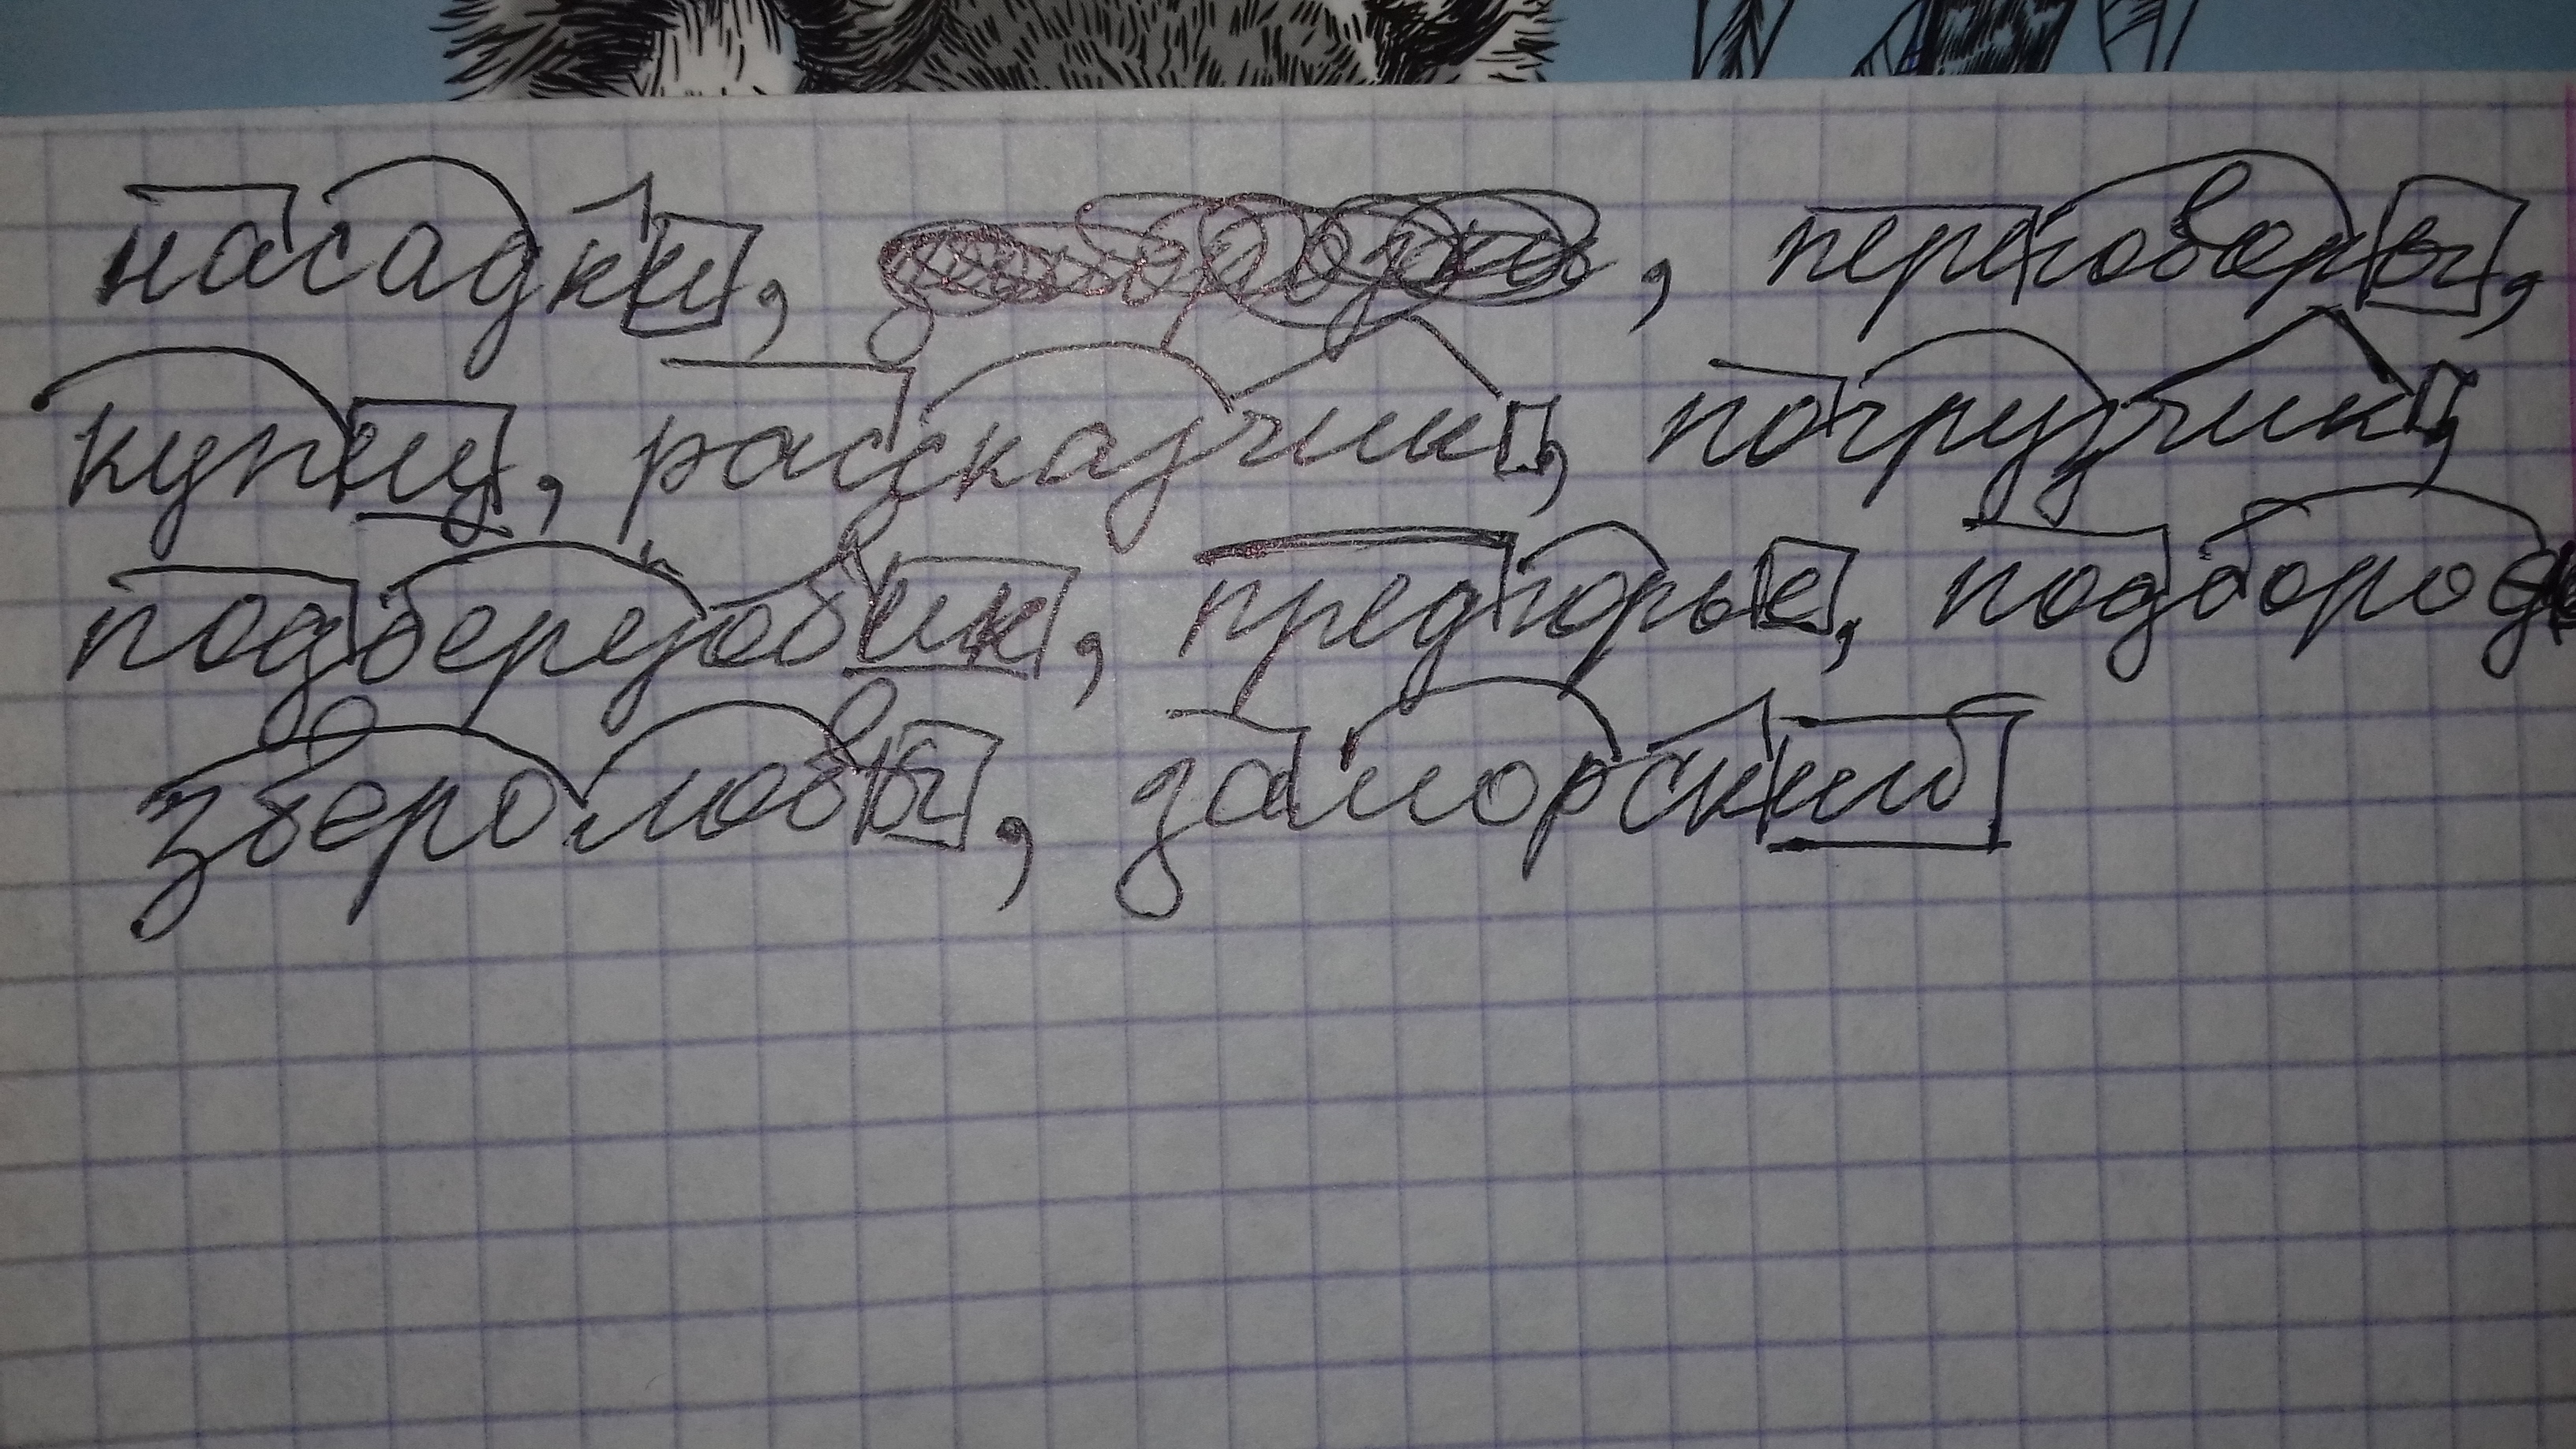 насадки, , переговоры,
купец, рассказчик, погрузчик,
подберезовик, предгорье, подбород
звероловы, заморский